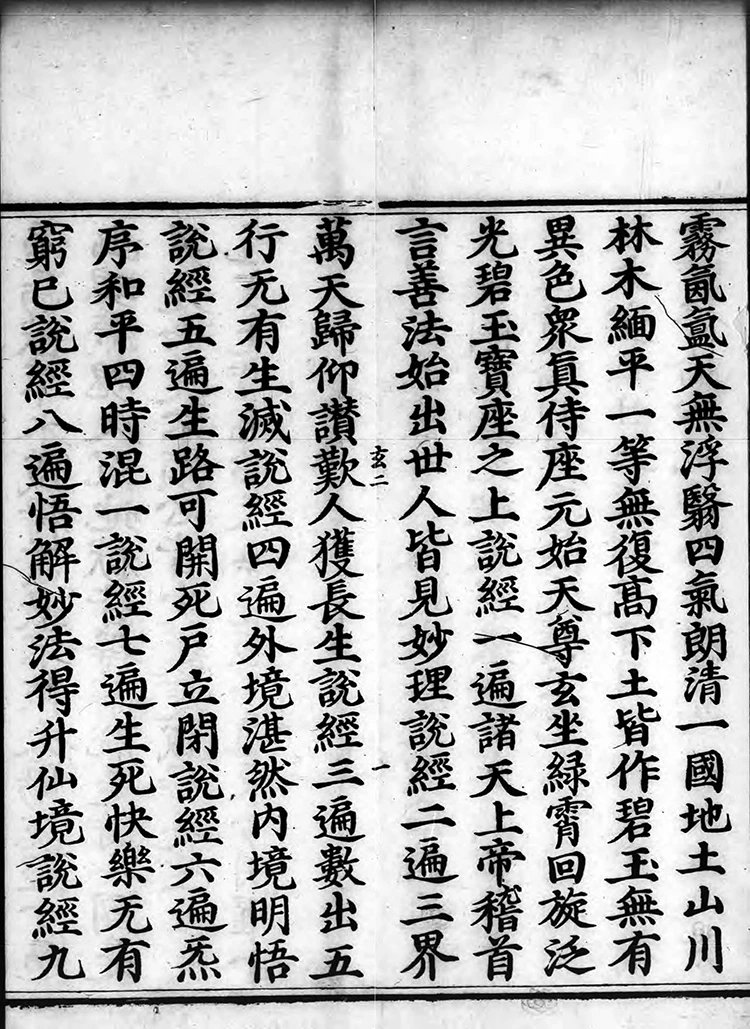 霧氤氳天無浮翳四氣朗清一國地土山川
林木緬平一等無復髙下土皆作碧玉無有
異色衆眞侍座元始天尊玄坐緑霄回旋泛
光碧玉寶座之上說經一遍諸天上帝稽首
言善法始出世人皆見妙理說經二遍三界
玄二
一
萬天歸仰讃歎人獲長生說經三遍數出五
行无有生滅說經四遍外境湛然内境明悟
說經五遍生路可開死戶立閉說經六遍炁
序和平四時混一說經七遍生死快樂无有
窮已說經八遍悟解妙法得升仙境說經九